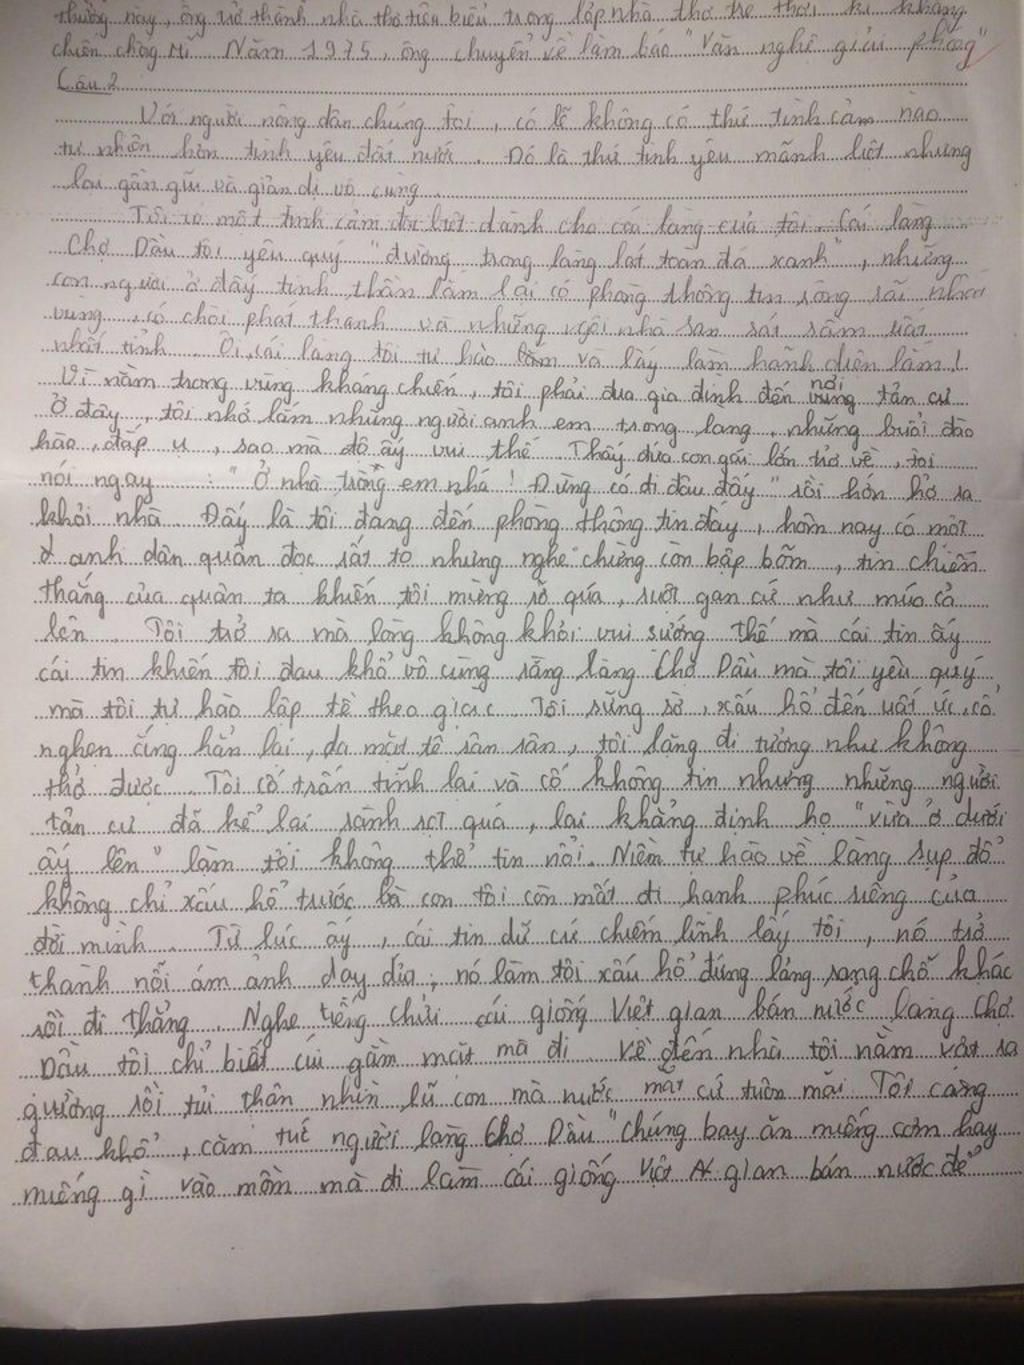 thường này, ông trở thành nhà thơ tiêu biểu trong lớp nhà thơ trẻ thời kì kháng
chiến chống Mĩ. Năm 1975, ông chuyển về làm báo "Văn nghệ giải phóng"
Câu 2
Với người nông dân chúng tôi, có lẽ không có thứ tình cảm nào
tự nhiên hơn tình yêu đất nước. Đó là thứ tình yêu mãnh liệt nhưng
lại gần gũi và giản dị vô cùng.
Tôi có một tình cảm đặc biệt dành cho cái làng của tôi. Cái làng
Chợ Dầu tôi yêu quý "đường trong làng lát toàn đá xanh", những
con người ở đấy tinh thần lắm lại có phòng thông tin rộng rãi nhất
vùng, có chòi phát thanh và những ngôi nhà san sát sầm uất
nhất tỉnh. Ôi, cái làng tôi tự hào lắm và lấy làm hãnh diện lắm!
Vì nằm trong vùng kháng chiến, tôi phải đưa gia đình đến nơi tản cư
Ở đây, tôi nhớ lắm những người anh em trong làng, những buổi đào
hào, đắp ụ, sao mà độ ấy vui thế. Thấy đứa con gái lớn trở về, tôi
nói ngay: "Ở nhà trông em nhá! Đừng có đi đâu đấy" rồi hớn hở ra
khỏi nhà. Đấy là tôi đang đến phòng thông tin đấy, hôm nay có một
anh dân quân đọc rất to nhưng nghe chừng còn bập bõm, tin chiến
thắng của quân ta khiến tôi mừng rỡ quá, ruột gan cứ như múa cả
lên. Tôi trở ra mà lòng không khỏi vui sướng thế mà cái tin ấy
cái tin khiến tôi đau khổ vô cùng rằng làng Chợ Dầu mà tôi yêu quý
mà tôi tự hào lập tề theo giặc. Tôi sững sờ, xấu hổ đến uất ức, cổ
nghẹn ắng hẳn lại, da mặt tê rân rân, tôi lặng đi tưởng như không
thở được. Tôi cố trấn tĩnh lại và cố không tin nhưng những người
tản cư đã kể lại rành rọt quá, lại khẳng định họ "vừa ở dưới
ấy lên" làm tôi không thể tin nổi. Niềm tự hào về làng sụp đổ
không chỉ xấu hổ trước bà con tôi còn mất đi hạnh phúc riêng của
đời mình. Từ lúc ấy, cái tin dữ cứ chiếm lĩnh lấy tôi, nó trở
thành nỗi ám ảnh day dứa, nó làm tôi xấu hổ đứng lảng sang chỗ khác
rồi đi thẳng. Nghe tiếng chửi cái giống Việt gian bán nước làng Chợ
Dầu tôi chỉ biết cúi gằm mặt mà đi. Về đến nhà tôi nằm vật ra
gường rồi tủi thân nhìn lũ con mà nước mắt cứ tuôn mãi. Tôi càng
đau khổ, căm tức người làng Chợ Dầu "chúng bay ăn miếng cơm hay
miếng gì vào mồm mà đi làm cái giống Việt gian bán nước để"